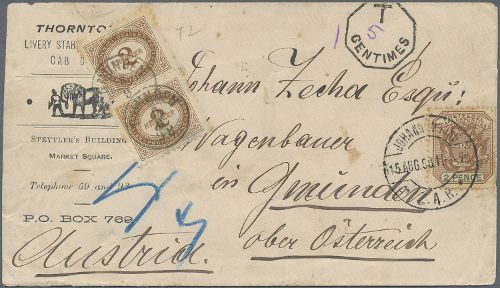 THORNTO
LIVERY STAB
CAB
STEYTLER'S BUILDING
MARKET SQUARE.
Telephone 59 and 92
P.O. BOX 769
T
5
CENTIMES
2
2
Johann Zecha Esqu:
Wagenbauer
in Gmünden
ober Österreich
Austria
JOHANN
15 AUG 98
Z.A.R.
2 PENCE